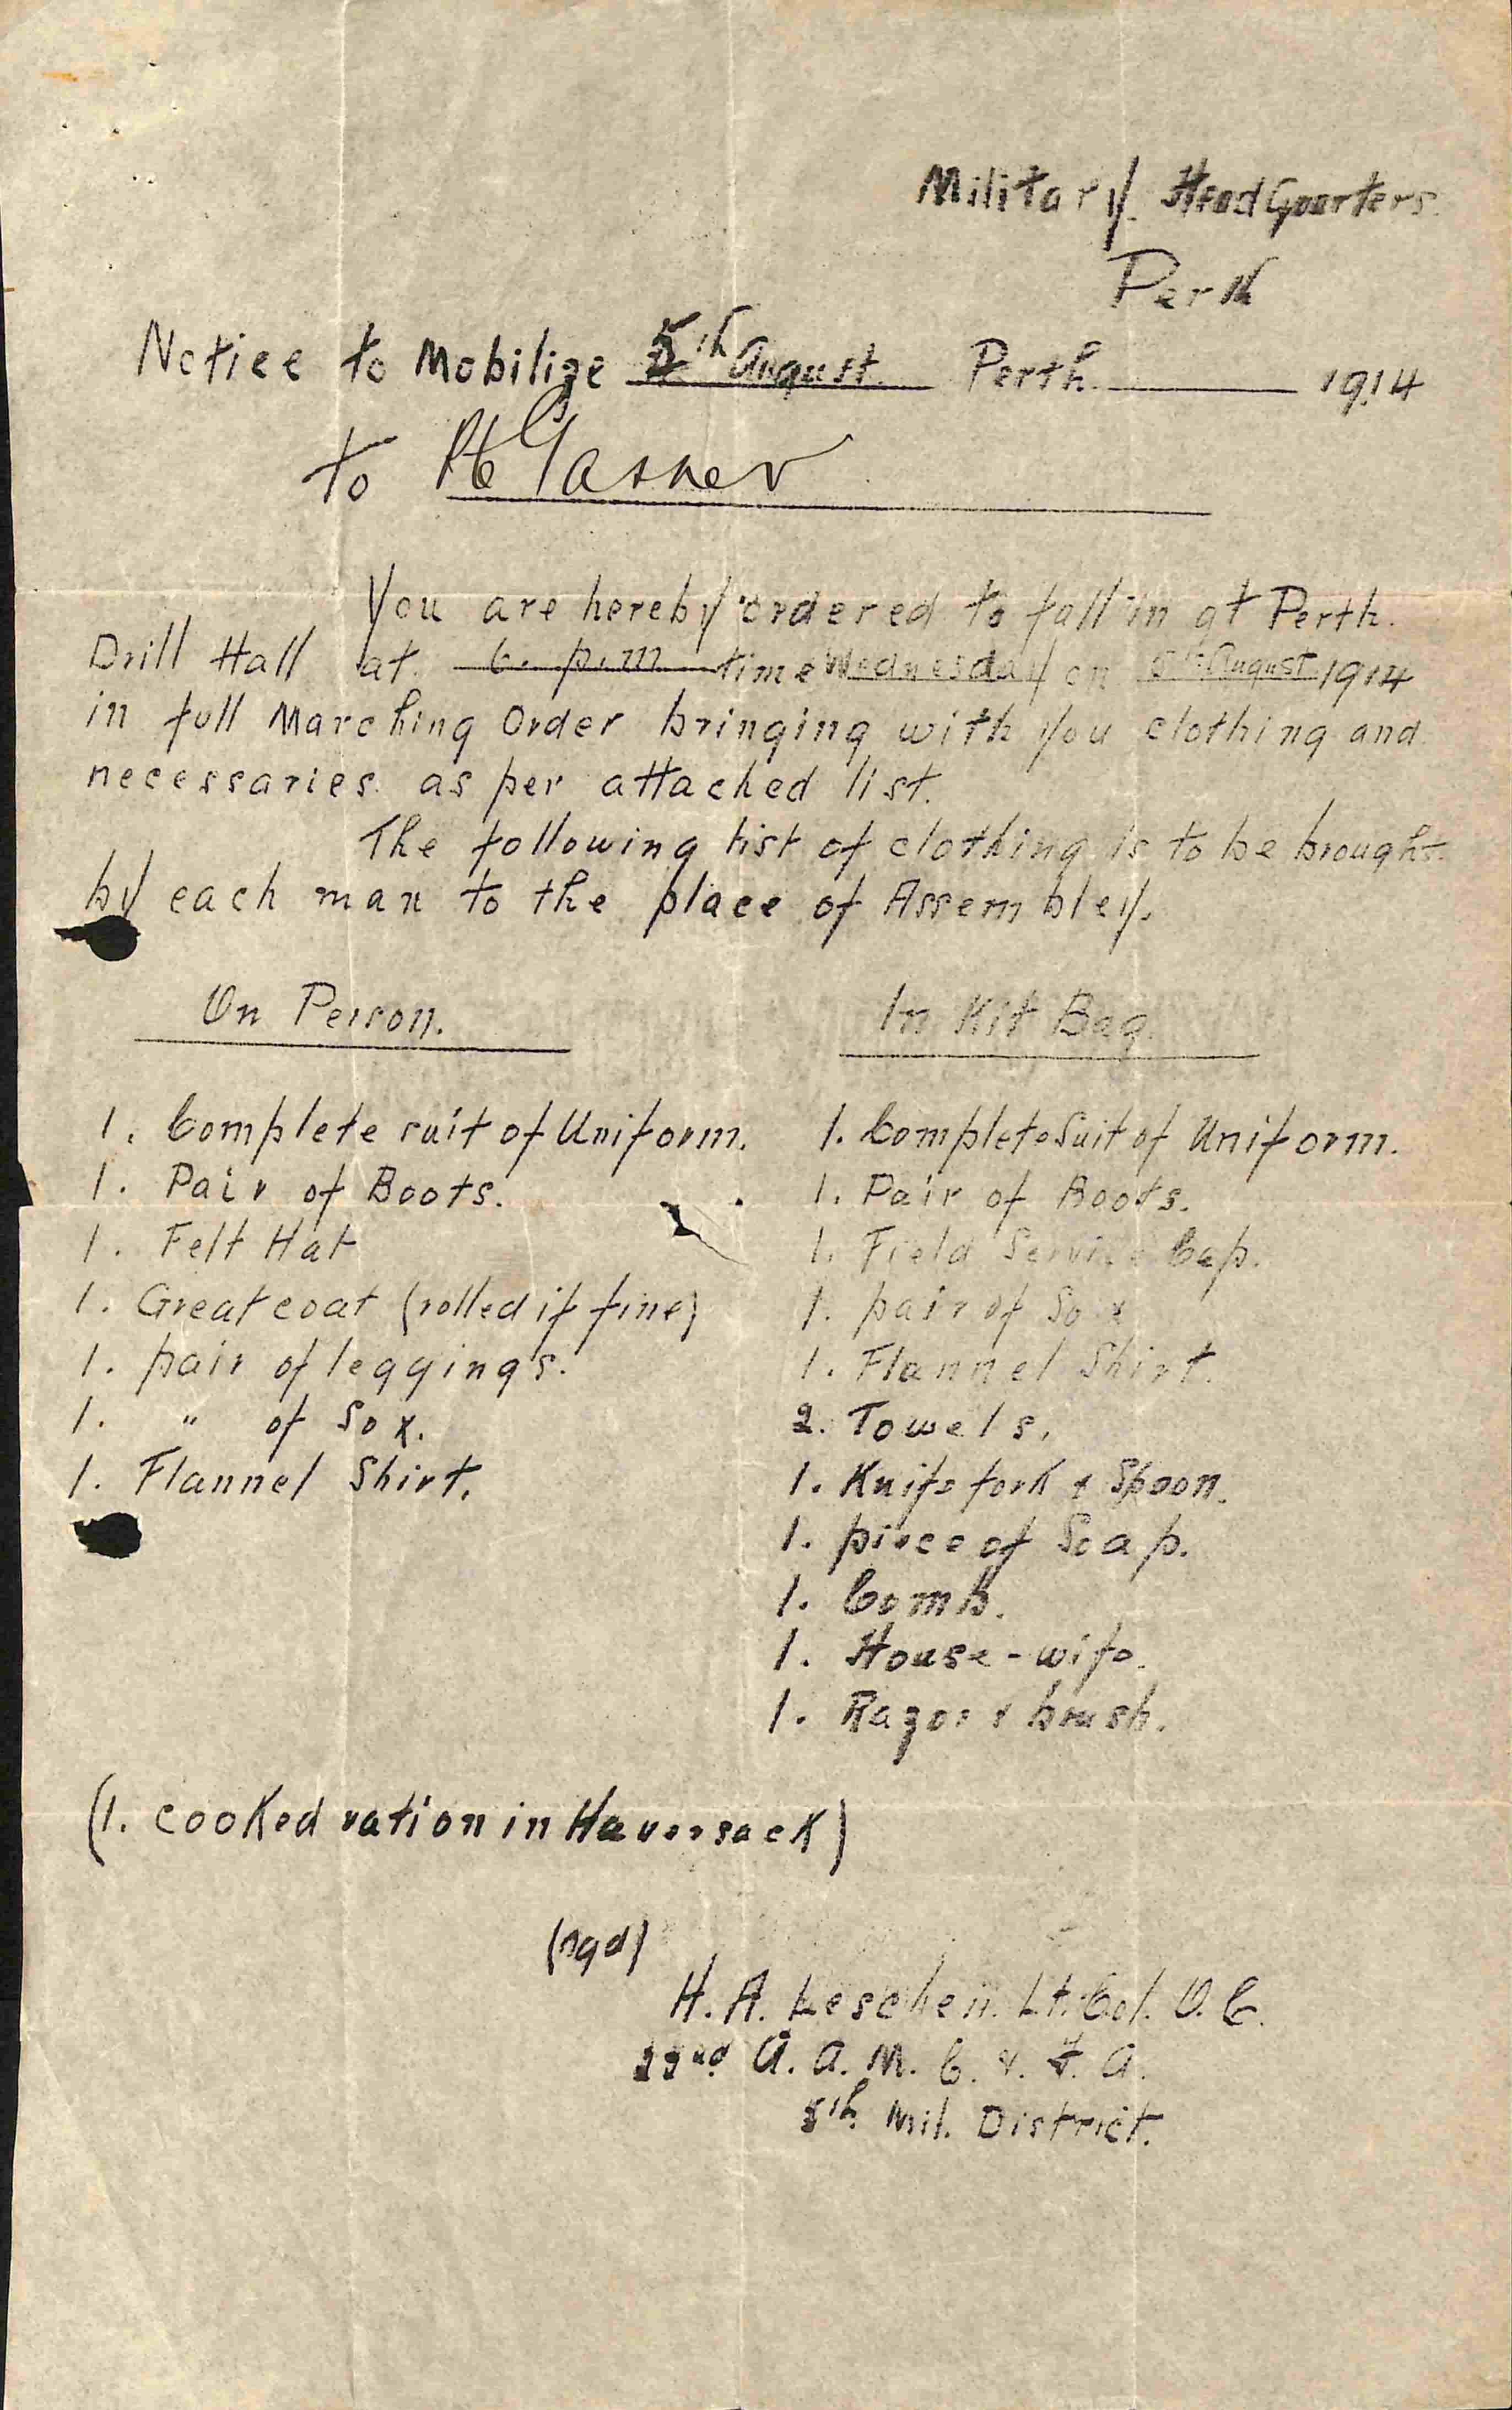 Military. Head Quarters.
Perth
Notice to Mobilize 5th August. Perth. 1914
to Pte
You are hereby ordered to fall in at Perth.
Drill Hall at 6. p.m time Wednesday on 5th August 1914
in full Marching Order bringing with you clothing and
necessaries. as per attached list.
The following list of clothing is to be brought.
by each man to the place of Assembley.
On Person.
1. Complete suit of Uniform.
1. Pair of Boots.
1. Felt Hat
1. Great coat (rolled if fine)
1. pair of leggings.
1. " of Sox.
1. Flannel Shirt.
In Kit Bag.
1. Complete Suit of Uniform.
1. Pair of Boots.
1. Field Service Cap.
1. pair of Sox
1. Flannel Shirt.
2. Towels.
1. Knife fork & Spoon.
1. piece of Soap.
1. Comb.
1. House-wife.
1. Razor & brush.
(1. cooked ration in Haversack)
(sgd)
H. A. Leschen. Lt. Col. O. C.
22nd A. A. M. C. & F. A.
5th Mil. District.